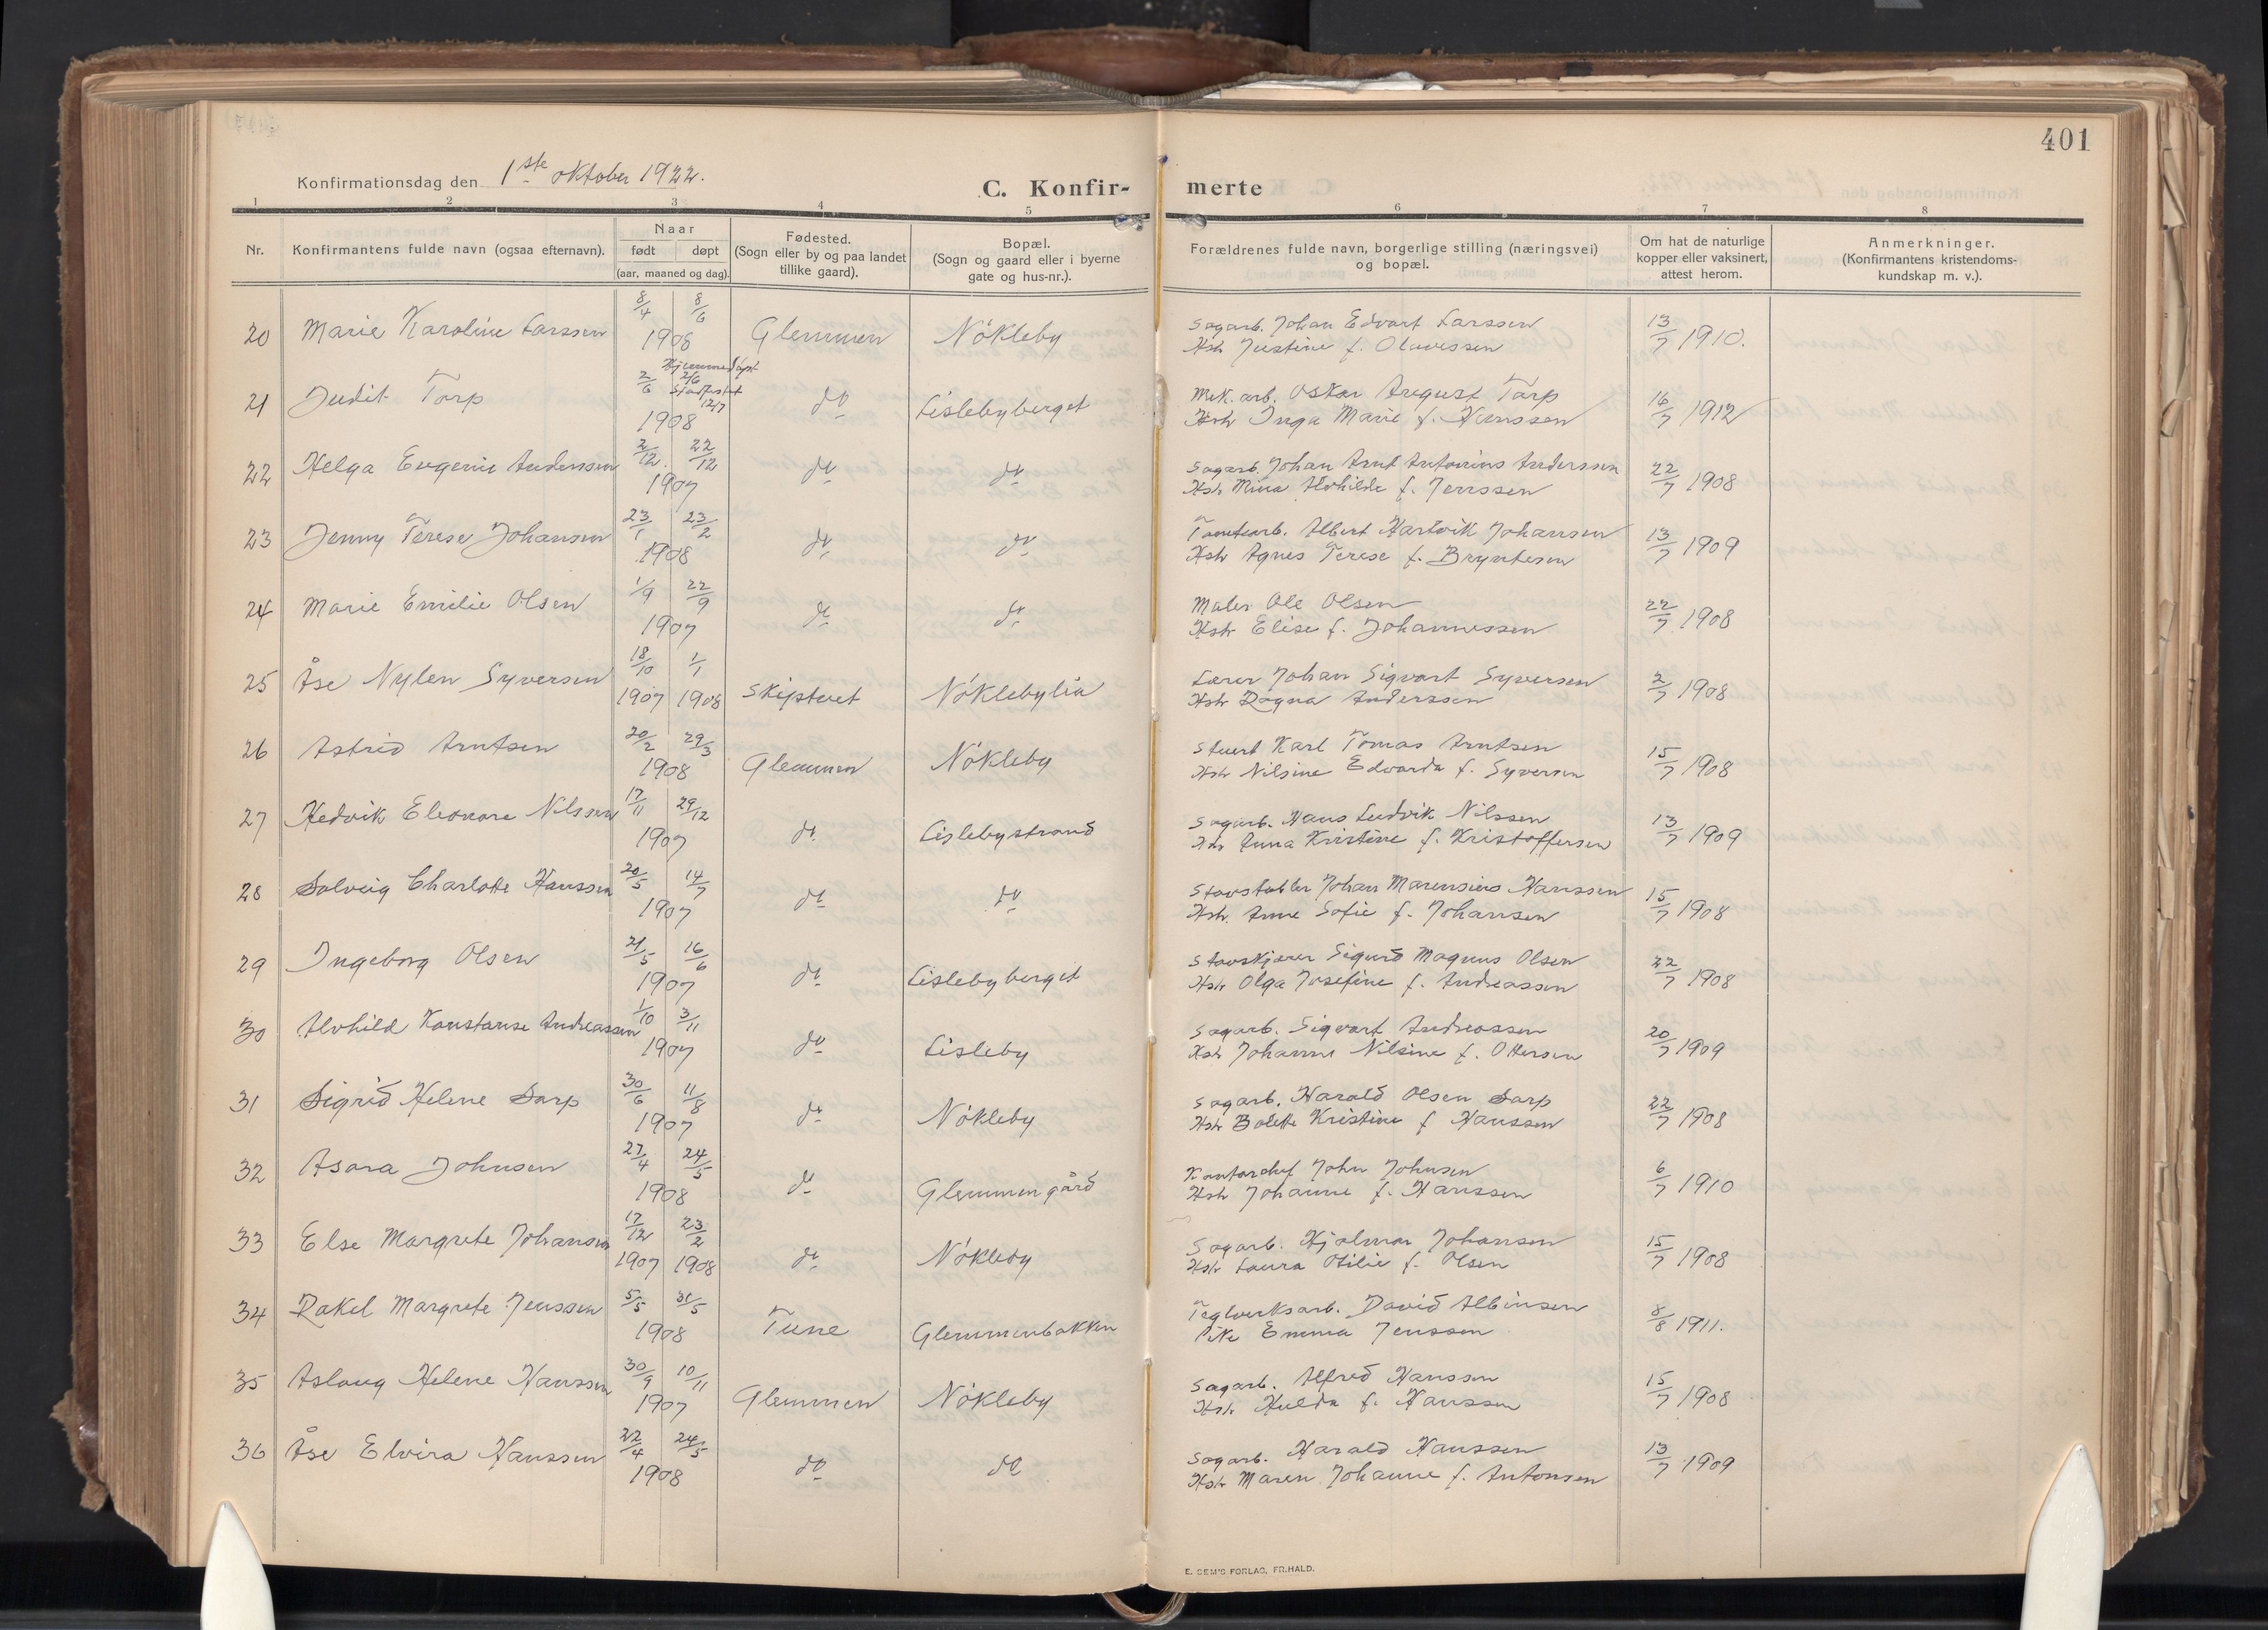 401
Konfirmationsdag den 1ste oktober 1922.
C. Konfir- merte
1 2 3 4 5 6 7 8
Nr.
Konfirmantens fulde navn (ogsaa efternavn).
Naar
født døpt
(aar, maaned og dag).
Fødested.
(Sogn eller by og paa landet
tillike gaard).
Bopæl.
(Sogn og gaard eller i byerne
gate og hus-nr.).
Forældrenes fulde navn, borgerlige stilling (næringsvei)
og bopæl.
Om hat de naturlige
kopper eller vaksinert,
attest herom.
Anmerkninger.
(Konfirmantens kristendoms-
kundskap m. v.).
20 Marie Karoline Larssen 8/4 8/6 1908 Glemmen Nökleby
Sagarb. Johan Edvart Larssen
Hstr Justine f. Olavessen
13/7 1910.
21 Judit Torp 2/6 Hjemmedöpt 2/6 Stadfestet 12/7 1908 do Lislebyberget
Mek. arb. Oskar August Torp
Hstr Inga Marie f. Hanssen
16/7 1912
22 Helga Eugenie Anderssen 2/12. 22/12 1907 do do
Sagarb. Johan Arnt Antonius Anderssen
Hstr Mina Alvhilde f. Jenssen
22/7 1908
23 Jenny Terese Johansen 23/1 23/2 1908 do do
Tomtearb. Albert Hartvik Johansen
Hstr Agnes Terese f. Bryntesen
13/7 1909
24 Marie Emilie Olsen 1/9 22/9 1907 do do
Maler Ole Olsen
Hstr Elise f. Johannessen
22/7 1908
25 Åse Nylen Syversen 18/10 1/1 1907 1908 Skiptvet Nöklebylia
Lærer Johan Sigvart Syversen
Hstr Ragna Anderssen
2/7 1908
26 Astrid Arntsen 20/2 29/3 1908 Glemmen Nökleby
Stuert Karl Tomas Arntsen
Hstr Nilsine Edvarda f. Syversen
15/7 1908
27 Hedvik Eleonore Nilssen 17/11 29/12 1907 do Lislebystrand
Sagarb. Hans Ludvik Nilssen
Hstr Anna Kristine f. Kristoffersen
13/7 1909
28 Solveig Charlotte Hanssen 20/5 14/7 1907 do do
Stavstabler Johan Marensius Hanssen
Hstr. Anne Sofie f. Johansen
15/7 1908
29 Ingeborg Olsen 21/5 16/6 1907 do Lislebyberget
Stavskjærer Sigurd Magnus Olsen
Hstr Olga Josefine f. Andreassen
22/7 1908
30 Alvhild Konstanse Andreassen 1/10 3/11 1907 do Lisleby
Sagarb. Sigvart Andreassen
Hstr Johanne Nilsine f. Ottersen
20/7 1909
31 Sigrid Helene Sarp 30/6 11/8 1907 do Nökleby
Sagarb. Harald Olsen Sarp
Hstr Bolette Kristine f Hanssen
22/7 1908
32 Asora Johnsen 27/4 24/5 1908 do Glemmengård
Kontorchef John Johnsen
Hstr Johanne f. Hanssen
6/7 1910
33 Else Margrete Johansen 17/12 23/2 1907 1908 do Nökleby
Sagarb. Hjalmar Johansen
Hstr Laura Otilie f. Olsen
15/7 1908
34 Rakel Margrete Jenssen 5/5 31/5 1908 Tune Glemmenbakken
Teglverksarb. David Albinsen
Pike Emma Jenssen
8/8 1911.
35 Aslaug Helene Hanssen 30/9 10/11 1907 Glemmen Nökleby
Sagarb. Alfred Hanssen
Hstr. Hulda f. Hanssen
15/7 1908
36 Åse Elvira Hanssen 22/4 24/5 1908 do do
Sagarb. Harald Hanssen
Hstr Maren Johanne f. Antonsen
13/7 1909
E. SEM'S FORLAG, FR.HALD.